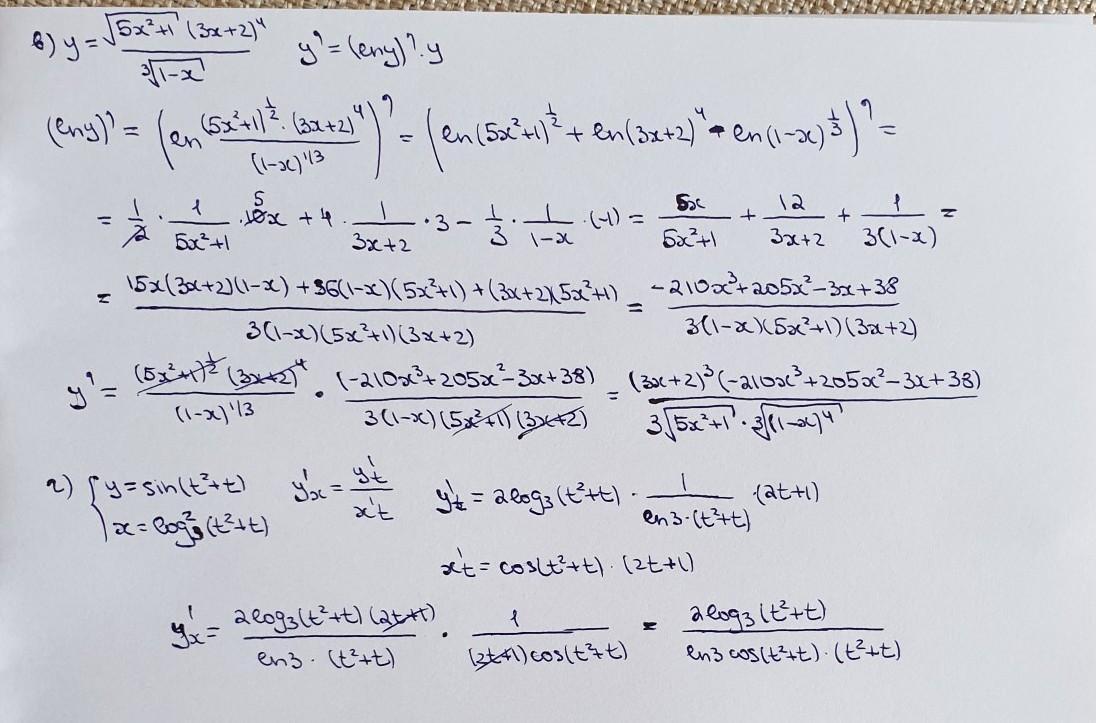 в) y = √(5x²+1) (3x+2)⁴ / ∛(1-x)    y' = (ln y)'·y
(ln y)' = (ln (5x²+1)^(1/2)·(3x+2)⁴ / (1-x)^(1/3))' = (ln(5x²+1)^(1/2) + ln(3x+2)⁴ - ln(1-x)^(1/3))' =
= 1/2 · 1/(5x²+1) · 10x + 4 · 1/(3x+2) · 3 - 1/3 · 1/(1-x) · (-1) = 5x/(5x²+1) + 12/(3x+2) + 1/(3(1-x)) =
= (15x(3x+2)(1-x) + 36(1-x)(5x²+1) + (3x+2)(5x²+1)) / (3(1-x)(5x²+1)(3x+2)) = (-210x³+205x²-3x+38) / (3(1-x)(5x²+1)(3x+2))
y' = (5x²+1)^(1/2) (3x+2)⁴ / (1-x)^(1/3) · (-210x³+205x²-3x+38) / (3(1-x)(5x²+1)(3x+2)) = (3x+2)³(-210x³+205x²-3x+38) / (3√(5x²+1) · ∛((1-x)⁴))
г) { y = sin(t²+t)    y'x = y't / x't    y't = 2log₃(t²+t) · 1/(ln3·(t²+t)) · (2t+1)
x = log₃²(t²+t)
x't = cos(t²+t)·(2t+1)
y'x = 2log₃(t²+t)(2t+1) / (ln3·(t²+t)) · 1/((2t+1)cos(t²+t)) = 2log₃(t²+t) / (ln3 cos(t²+t)·(t²+t))